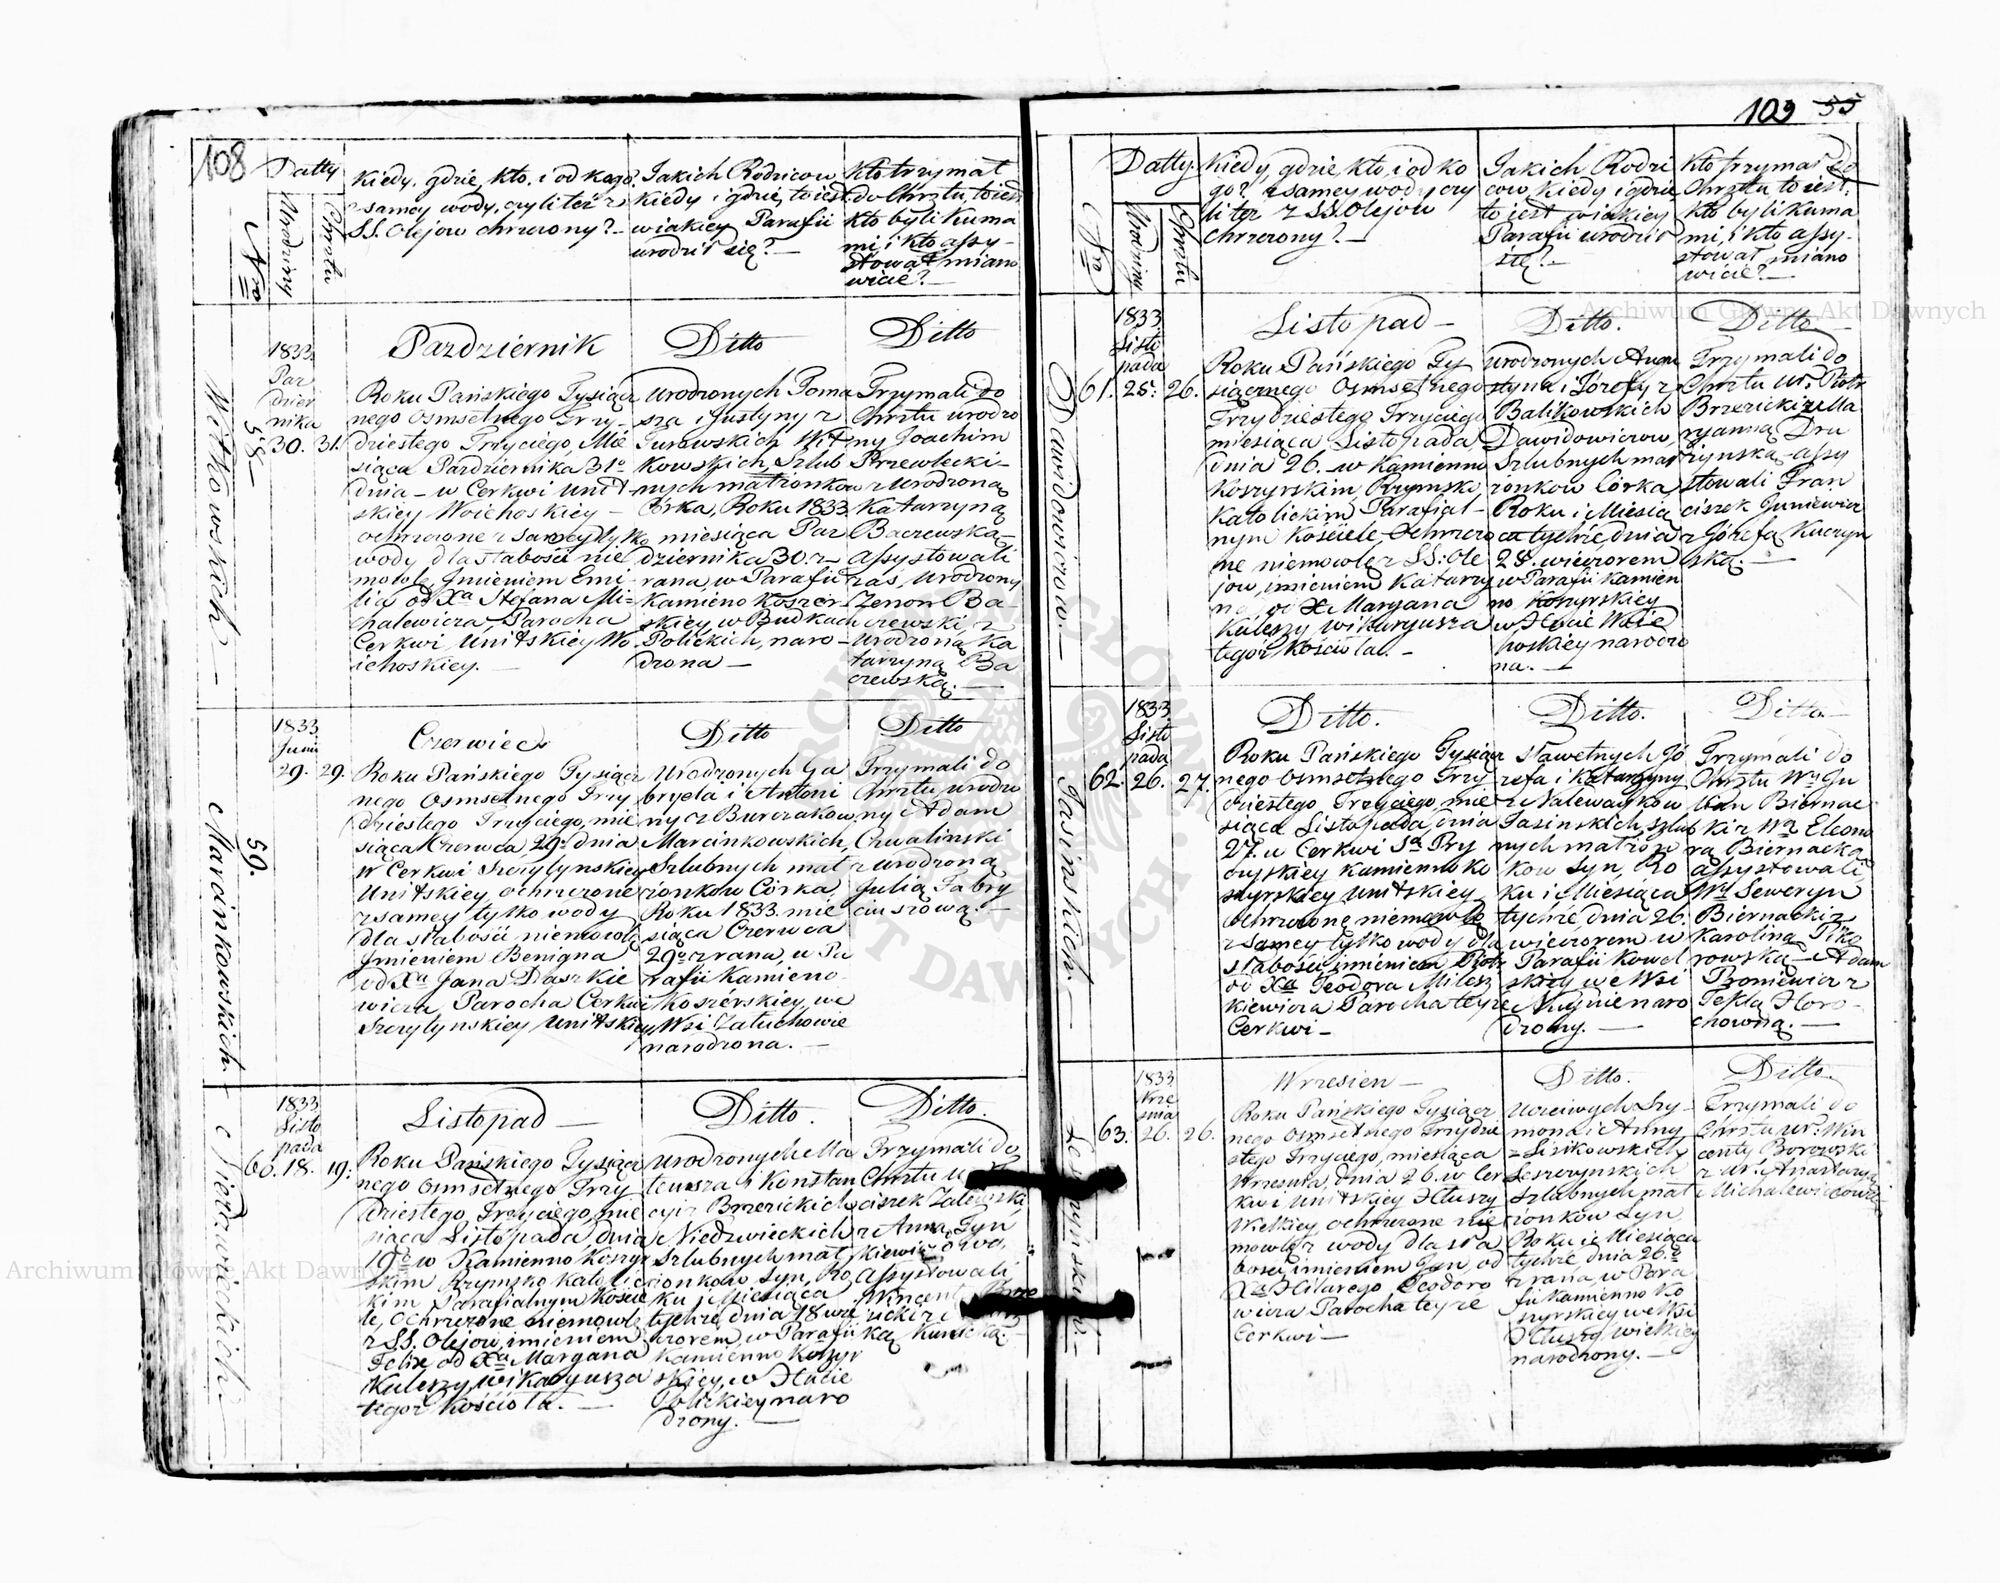 108
Datty
Nro
Urodziny
Chrztu
Kiedy, gdzie, kto, i od kogo?
z samey wody, czy li też z
SS. Olejow chrzczony?
Jakich Rodzicow
kiedy i gdzie, to iest
w iakiey Parafii
urodził się?
Kto trzymał
do Chrztu, to iest
kto byli kuma
mi i kto assy-
stował miano
wicie?
Witkowskich
58
1833
Paz
dzier
nika
30. 31.
Pazdziernik
Roku Pańskiego Tysiącz
nego Osmsetnego Trzy-
dziestego Trzyciego, Mie
siąca Pazdziernika 31o
dnia w Cerkwi Unit-
skiey Woichoskiey
ochrzczone z samey tylko
wody dla słabości nie
mowle Jmieniem Emi-
lia od Xa Stefana Mi-
chalewicza, Parocha
Cerkwi Unitskiey Wo
ichoskiey.
Ditto
Urodzonych Toma
sza i Justyny z
Gurowskich Wit-
kowskich, Szlub
nych małżonkow
Córka, Roku 1833
miesiąca Paz
dziernika 30. z
rana, w Parafii
Kamieno Koszer
skiey, w Budkach
Polickich, naro-
dzona
Ditto
Trzymali do
Chrztu urodzo
ny Joachim
Przewłocki
z Urodzoną
Katarzyną
Baczewską
Assystowali
zas, Urodzony
Zenon Ba-
czewski z
Urodzoną Ka
tarzyną Ba
czewską.
Marcinkowskich
59.
1833
Juni
29. 29.
Czerwiec
Roku Pańskiego Tysiącz
nego Osmsetnego Trzy
dziestego Trzyciego, mie
siąca Czerwca 29o dnia
w Cerkwi Szczytynskiey
Unitskiey ochrzczone
z samey tylko wody
dla słabości niemowle
Jmieniem Benigna
od Xa Jana Daszkie
wicza Parocha Cerkwi
Szczytynskiey Unitskiey
Ditto
Urodzonych Ga
bryela i Antoni
ny z Burczakow
Marcinkowskich,
Szlubnych mał
żonkow Córka,
Roku 1833. mie
siąca Czerwca
29o z rana, w Pa
rafii Kamieno
Koszérskiey, we
Wsi Załuchowie
narodzona.
Ditto
Trzymali do
Chrztu, urodzo
ny Adam
Chwalinski
z urodzoną
Julią Fabry
ciuszową.
Niedzwieckich
1833
Listo
pada
60. 18. 19.
Listopad
Roku Pańskiego Tysiącz
nego Osmsetnego Trzy
dziestego Trzyciego, mie
siąca Listopada dnia
19o w Kamienno Koszyr
skim Rzymsko Katolic
kim Parafialnym Koście
le, Ochrzczone niemowle
z SS. Olejow, imieniem
Felix, od Xa Maryana
Kuleszy, wikaryusza
tegoż Kościoła.
Ditto
Urodzonych Ma
teusza i Konstan
cyi z Brzezickich
Niedzwieckich
Szlubnych mał
żonkow Syn, Ro
ku i Miesiąca
tychże, dnia 18 wie
czorem, w Parafii
Kamienno Koszyr
skiey, w Hucie
Polickiey naro
dzony.
Ditto.
Trzymali do
Chrztu
ciszek Zaleski
z Anną Syn
Assystowali
Wincenty
103 55
Datty.
Nro
Urodziny
Chrztu
Kiedy, gdzie, kto, i od ko
go? z samey wody czy
li też z SS. Olejow
chrzczony?
Jakich Rodzi
cow, kiedy i gdzie
to iest w iakiey
Parafii urodził
się?
Kto trzymał do
Chrztu to iest:
kto byli Kuma
mi, i kto assy-
stował miano
wicie?
Dawidowiczow
1833
Listo
pada
61. 25. 26.
Listopad
Roku Pańskiego Ty
siącznego Osmsetnego
Trzydziestego Trzyciego
miesiąca Listopada,
dnia 26. w Kamienno
Koszyrskim, Rzymsko
Katolickim Parafial-
nym Kościele, Ochrzczo
ne niemowle z SS: Ole
jow, imieniem Katarzy
na, od Xa Maryana
Kuleszy, wikaryusza
tegoż Kościoła.
Ditto.
Urodzonych Augu
styna i Józefy z
Balikowskich
Dawidowiczow,
Szlubnych mał
żonkow Córka,
Roku i Miesią
ca tychże, dnia
25. wieczorem
w Parafii Kamien
no Koszyrskiey
w Hucie Woie
hoskiey narodzo
na.
Ditto
Trzymali do
Chrztu Ur. Piotr
Brzezicki z Ma
ryanną Dru
żynską, assy
stowali Fran
ciszek Guniewicz
z Józefą Kuczyn
ską.
Jasinskich.
1833
Listo
pada
62. 26. 27.
Ditto.
Roku Pańskiego Tysiącz
nego Osmsetnego Trzy
dziestego Trzyciego, mie
siąca Listopada, dnia
27. w Cerkwi Sa Prży
czyskiey Kamienno Ko
szyrskiey Unitskiey,
Ochrzczone niemowle
z samey tylko wody dla
słabości imieniem Piotr
od Xa Teodora Milesz
kiewicza Parocha teyże
Cerkwi
Ditto.
Sławetnych Jó
zefa i Katarzyny
z Nalewaykow
Jasinskich, Szlub
nych małżon
kow Syn, Ro
ku i Miesiąca
tychże, dnia 26.
wieczorem w
Parafii Kowel
skiey we Wsi
Nuynie naro
dzony.
Ditto
Trzymali do
Chrztu Wy Ju
lian Biernac
ki z Wą Eleono
rą Biernacką
Assystowali,
Wy Seweryn
Biernacki z
Karoliną Piko
rowską Adam
Broniewicz z
Teklą Horo-
chowną.
1833
Wrze
śnia
63. 26. 26.
Wrzesien
Roku Pańskiego Tysiącz
nego Osmsetnego Trzydzie
stego Trzyciego, miesiąca
Wrzesnia, dnia 26. w Cer
kwi Unitskiey Hłuszy
Wielkiey ochrzczone nie
mowle z wody dla sła
bości, imieniem Jan, od
Xa Hilarego Teodoro
wicza Parocha teyże
Cerkwi
Ditto.
Uczciwych Szy-
mona i Anny
z Lisikowskich
Leszczynskich
Szlubnych mał
żonkow Syn
Roku i Miesiąca
tychże, dnia 26.o
z rana, w Para
fii Kamienno Ko
szyrskiey we Wsi
Hłuszy wielkiey
narodzony.
Ditto.
Trzymali do
Chrztu Ur. Win
centy Borowski
z Ur. Anastazyą
Michalewiczową
Archiwum Główne Akt Dawnych
Archiwum Główne Akt Dawnych